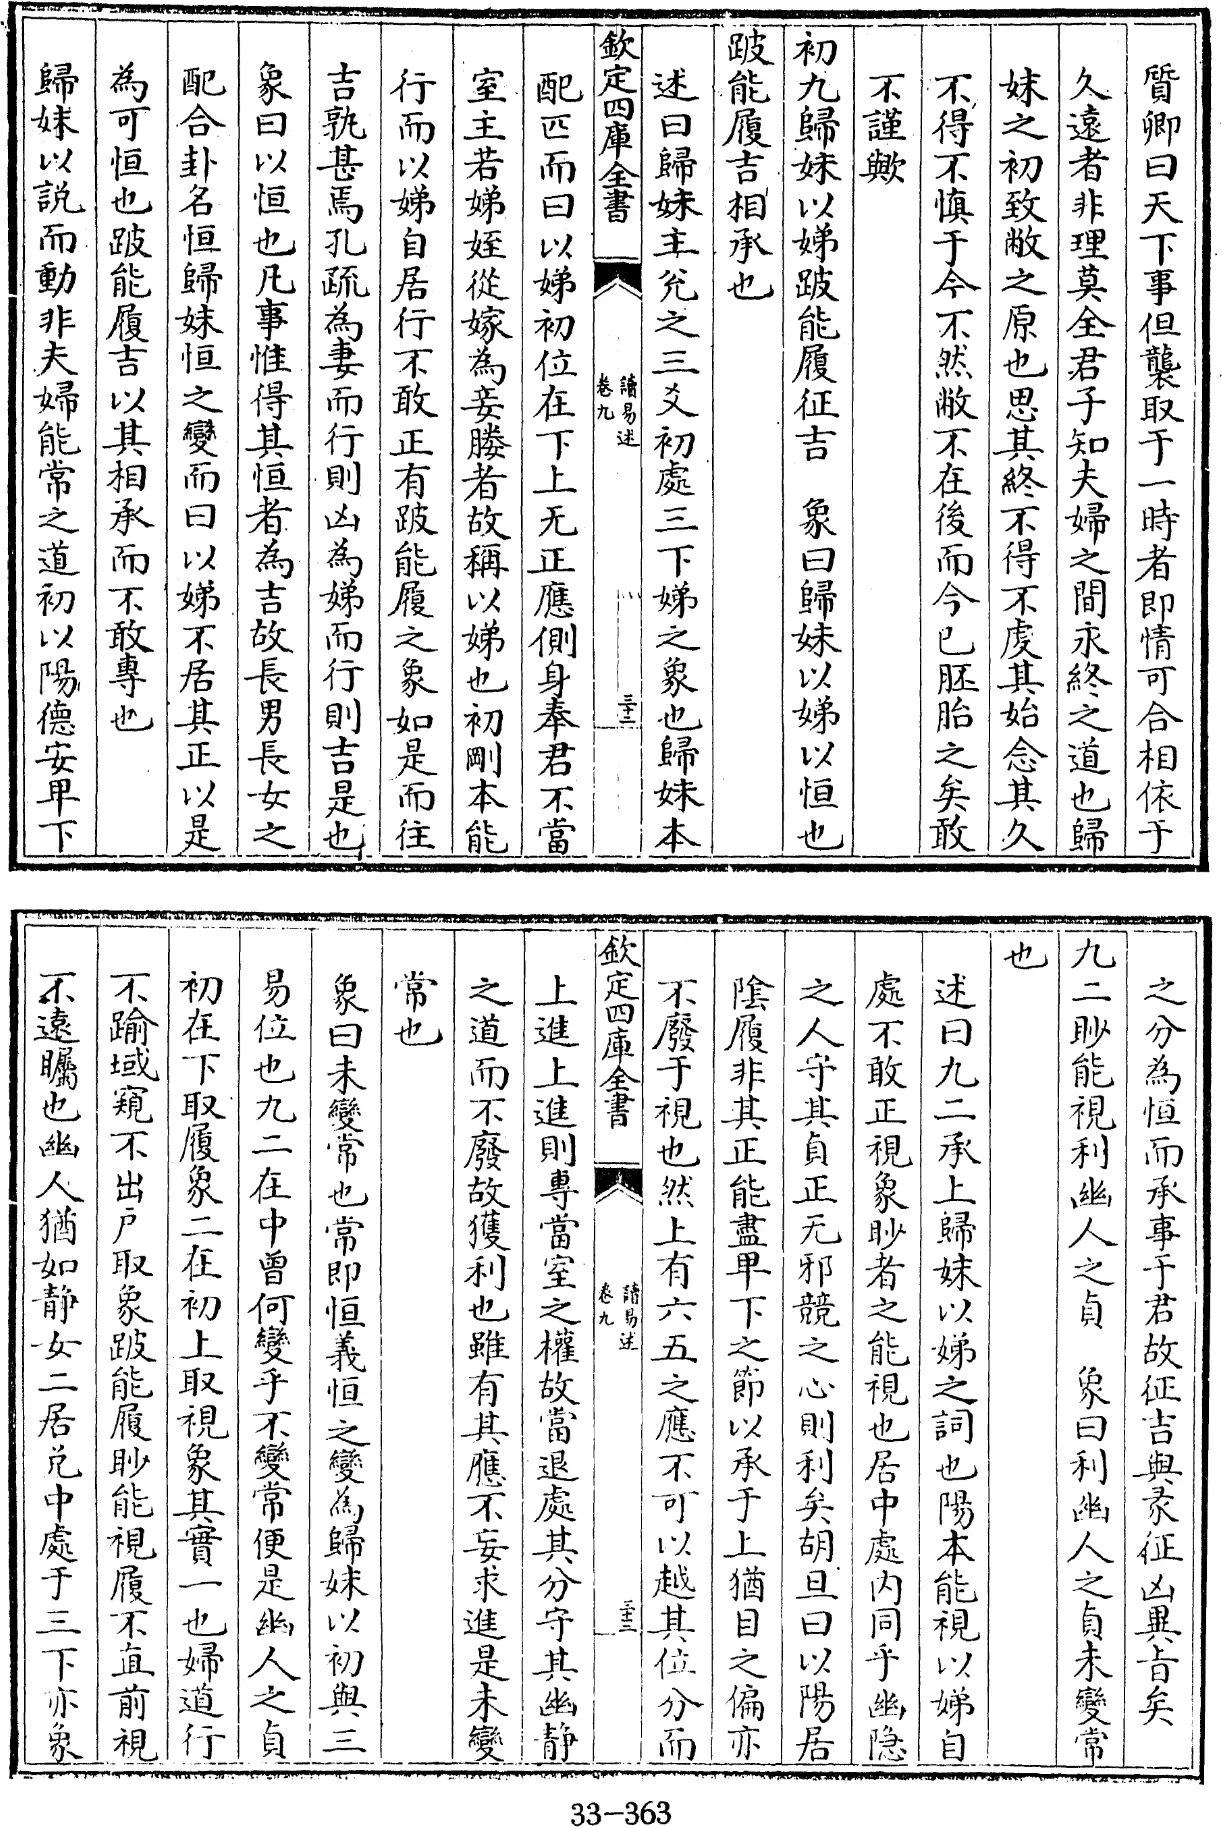 質卿曰天下事但襲取于一時者即情可合相依于
久遠者非理莫全君子知夫婦之間永終之道也歸
妹之初致敝之原也思其終不得不虔其始念其久
不得不慎于今不然敝不在後而今已胚胎之矣敢
不謹歟
初九歸妹以娣跛能履征吉　象曰歸妹以娣以恒也
跛能履吉相承也
述曰歸妹主兊之三爻初處三下娣之象也歸妹本
欽定四庫全書
讀易述
卷九
三十二
配匹而曰以娣初位在下上无正應側身奉君不當
室主若娣姪從嫁為妾媵者故稱以娣也初剛本能
行而以娣自居行不敢正有跛能履之象如是而往
吉孰甚焉孔疏為妻而行則凶為娣而行則吉是也
象曰以恒也凡事惟得其恒者為吉故長男長女之
配合卦名恒歸妹恒之變而曰以娣不居其正以是
為可恒也跛能履吉以其相承而不敢專也
歸妹以說而動非夫婦能常之道初以陽德安卑下
之分為恒而承事于君故征吉與彖征凶異旨矣
九二眇能視利幽人之貞　象曰利幽人之貞未變常
也
述曰九二承上歸妹以娣之詞也陽本能視以娣自
處不敢正視象眇者之能視也居中處内同乎幽隠
之人守其貞正无邪競之心則利矣胡旦曰以陽居
陰履非其正能盡卑下之節以承于上猶目之偏亦
不廢于視也然上有六五之應不可以越其位分而
欽定四庫全書
讀易述
卷九
三十三
上進上進則專當室之權故當退處其分守其幽靜
之道而不廢故獲利也雖有其應不妄求進是未變
常也
象曰未變常也常即恒義恒之變為歸妹以初與三
易位也九二在中曾何變乎不變常便是幽人之貞
初在下取履象二在初上取視象其實一也婦道行
不踰域窺不出戶取象跛能履眇能視履不直前視
不遠矚也幽人猶如靜女二居兊中處于三下亦象
33-363